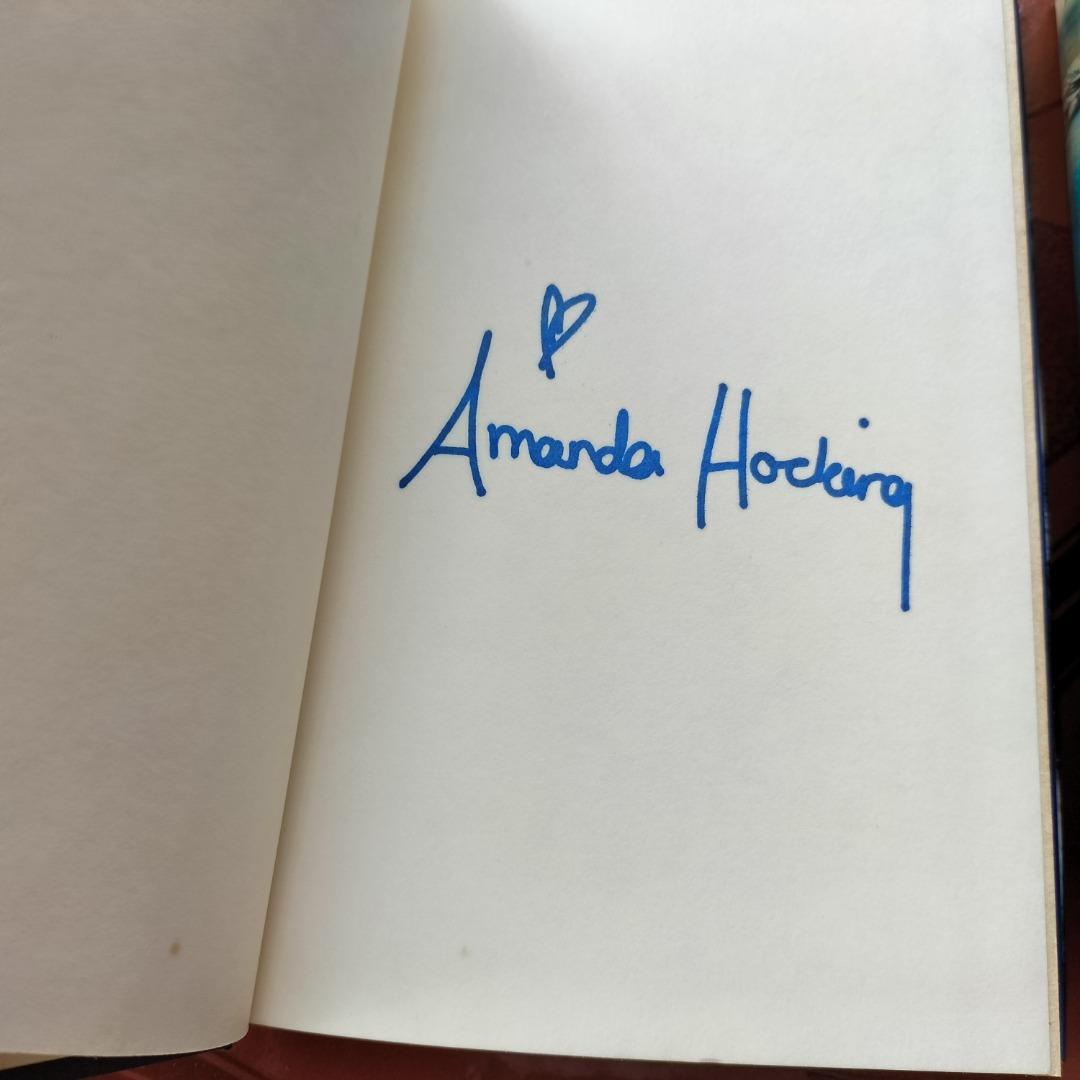 Amanda Hocking